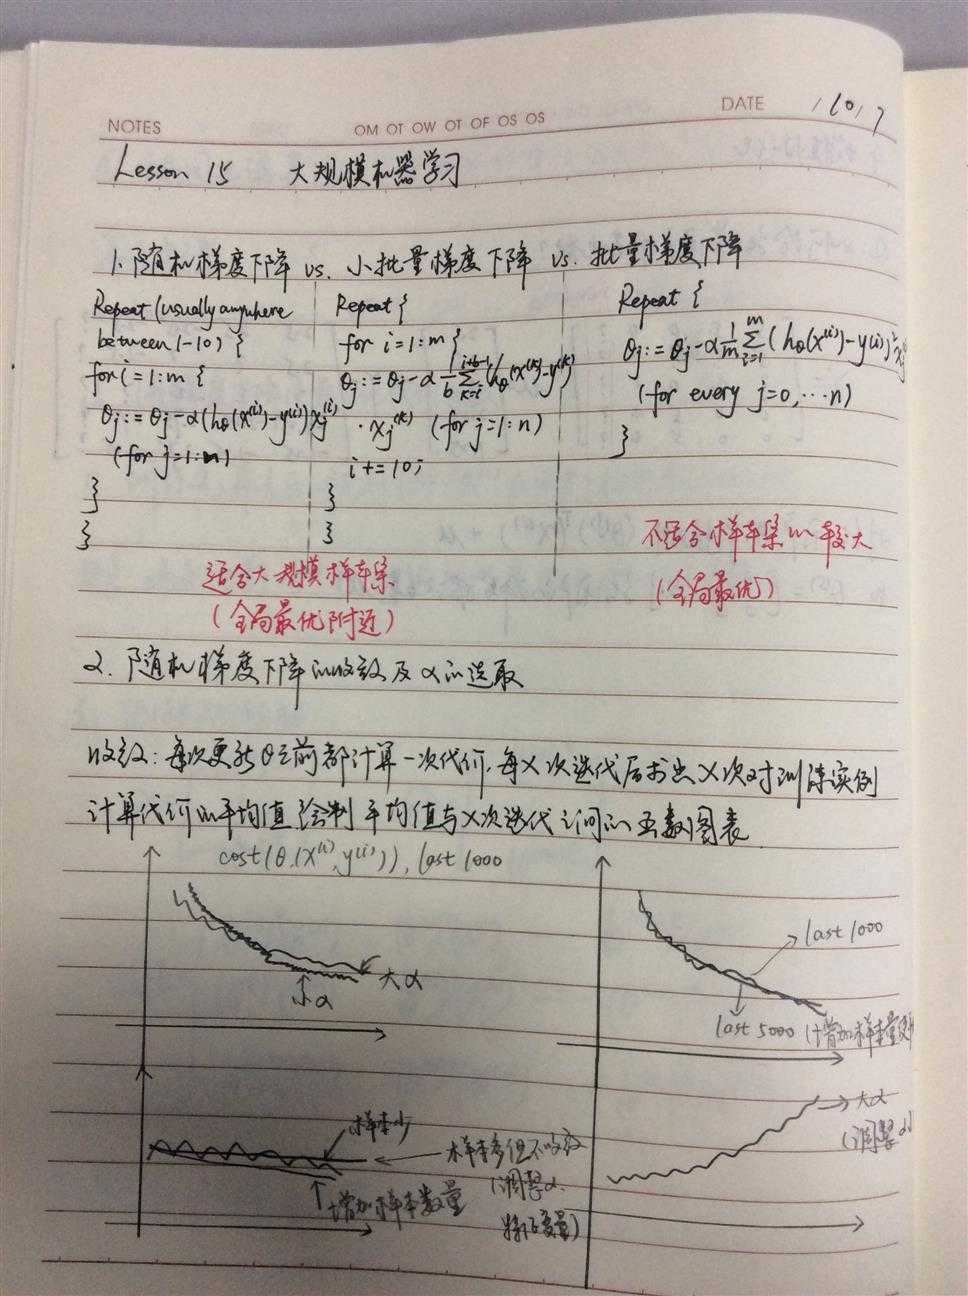 NOTES
OM OT OW OT OF OS OS
DATE
Lesson 15 大规模机器学习
1. 随机梯度下降 vs. 小批量梯度下降 vs. 批量梯度下降
Repeat (usually anywhere
between 1-10) {
for i=1:m {
θj := θj-α(hθ(x^(i))-y^(i))xj^(i)
(for j=1:n)
}
}
Repeat {
for i=1:m {
θj := θj-α 1/b Σ_{k=i}^{i+b-1}(hθ(x^(k))-y^(k))
· xj^(k) (for j=1:n)
i+=10;
}
}
Repeat {
θj := θj-α 1/m Σ_{i=1}^{m}(hθ(x^(i))-y^(i))
(for every j=0,…n)
}
适合大规模样本集
(全局最优附近)
不适合样本集m较大
(全局最优)
2. 随机梯度下降的收敛及α的选取
收敛: 每次更新θ之前都计算一次代价, 每X次迭代后求出X次对训练实例
计算代价的平均值绘制平均值与X次迭代之间的函数图表
cost(θ,(x^(i),y^(i))), last 1000
大α
小α
last 1000
last 5000 (增加样本量
样本少
样本多但不收敛
(调整α、
特征变量)
增加样本数量
大α
(调整α)